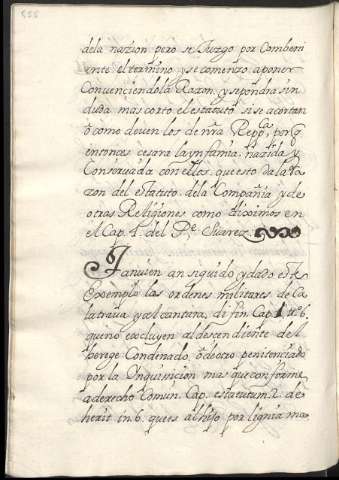 dela nazion pero se Juzgo por Combeni
ente el termino, y se comenzo a poner
Convenciendola Razon, y se pondra sin
duda mas corto el estatuto, si se acortan
o como deven los de nra Repca, porq
entonces cesara la ynfamia, nazida y
Conservada con ellos, que esto da la Ra
zon del estatuto dela Compañia y de
otras Religiones como diximos en
el Cap. 1. del Pe Suarez
Tanvien an siguido y dado este
Exemplo las ordenes militares de Ca
latrava y Alcantara, di fin Cap 1. tt 6.
que no excluyen al descendiente del
herege Condenado, o de otro penitenciado
por la Ynquisicion mas que conforme
a derecho Comun Cap. estatutum 2. de
heret. in 6. que es al hijo por lignia ma